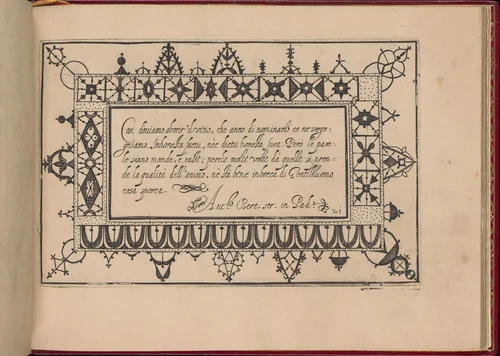 Cosi douiamo aborir' il vitio, che anco di nominarlo ce ne vergo=
gniamo. Inhonesta factu, nec dictu honesta sunt. Però le paro=
le siano monde, e caste; perciò molte volte da quelle si pren=
de la qualità dell'animo, nè stà bene in bocca di Gentilhuomo
cosa sporca.
Ant.º Bere. ser. in Pad.ª